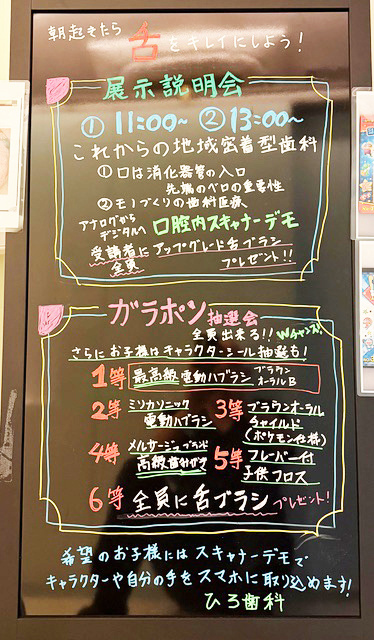 朝起きたら 舌をキレイにしよう！
展示説明会
① 11:00～ ② 13:00～
これからの地域密着型歯科
① 口は消化器管の入口
先端のベロの重要性
② モノづくりの歯科医療
アナログから
デジタルへ 口腔内スキャナーデモ
受講者に アップグレード舌ブラシ
全員 プレゼント!!
ガラポン抽選会
全員出来る!! Wチャンス!
さらにお子様はキャラクターシール抽選も！
1等 最高級電動ハブラシ ブラウンオーラルB
2等 ミソカソニック電動ハブラシ
3等 ブラウンオーラルチャイルド(ポケモン仕様)
4等 メルサージュブランド高級歯みがき
5等 フレーバー付子供フロス
6等 全員に舌ブラシ プレゼント!
希望のお子様には スキャナーデモで
キャラクターや自分の手をスマホに取り込めます!
ひろ歯科